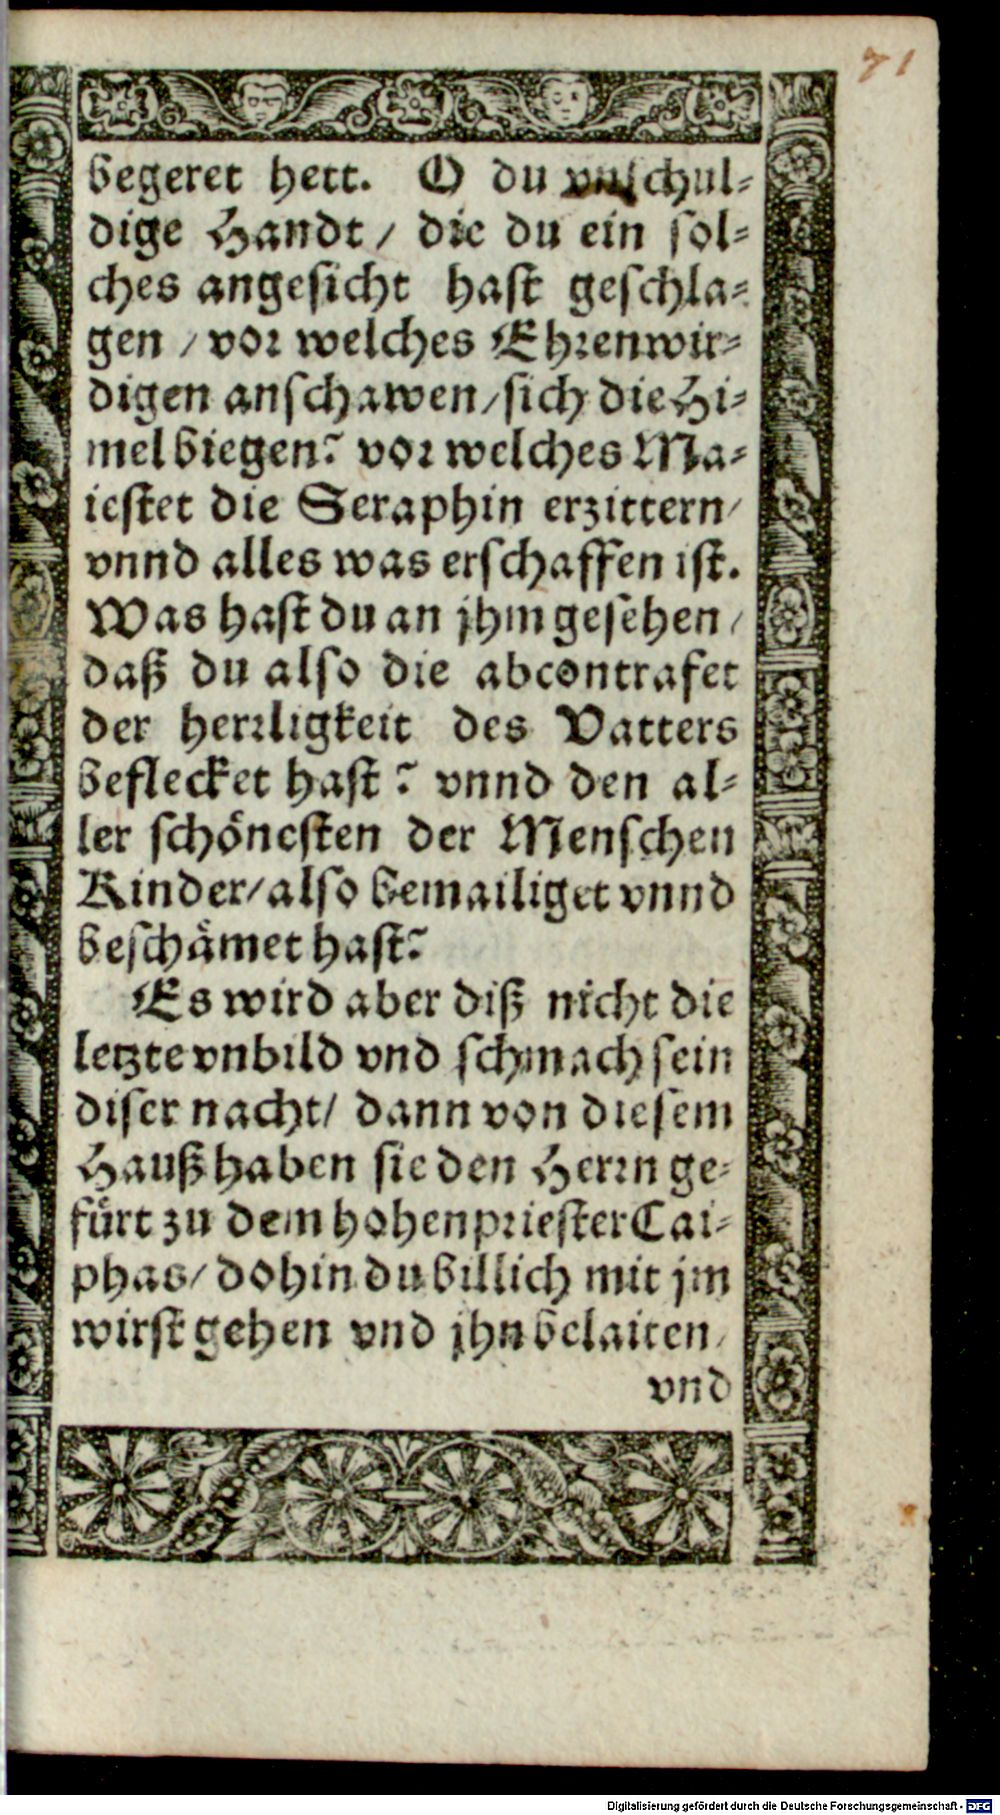 71
begeret hett. O du vnschul-
dige Handt / die du ein sol-
ches angesicht hast geschla-
gen / vor welches Ehrenwir-
digen anschawen / sich die Hi-
mel biegen? vor welches Ma-
iestet die Seraphin erzittern /
vnnd alles was erschaffen ist.
Was hast du an jhm gesehen /
daß du also die abcontrafet
der herrligkeit des Vatters
beflecket hast? vnnd den al-
ler schönesten der Menschen
Kinder / also bemailiget vnnd
beschämet hast?
Es wird aber diß nicht die
letzte vnbild vnd schmach sein
diser nacht / dann von diesem
Hauß haben sie den Herrn ge-
fürt zu dem hohenpriester Cai-
phas / dohin du billich mit jm
wirst gehen vnd jhn belaiten /
vnd
Digitalisierung gefördert durch die Deutsche Forschungsgemeinschaft - DFG